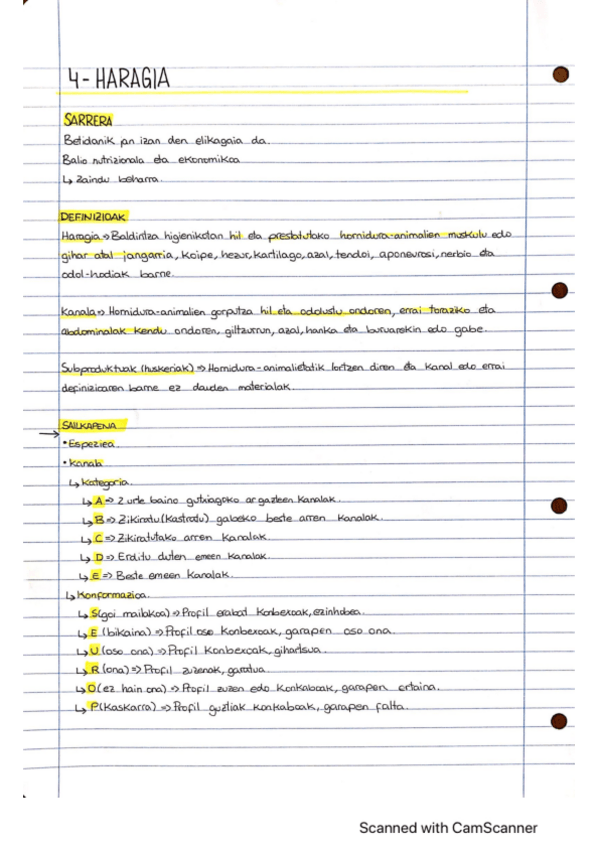 4- HARAGIA
SARRERA
Betidanik jan izan den elikagaia da.
Balio nutrizionala eta ekonomikoa
↳ Zaindu beharra.
DEFINIZIOAK
Haragia → Baldintza higienikotan hil eta prestatutako hornidura-animalien muskulu edo
gihar atal jangarria, koipe, hezur, kartilago, azal, tendoi, aponeurosi, nerbio eta
odol-hodiak barne.
Kanala → Hornidura-animalien gorputza hil eta odolustu ondoren, errai toraziko eta
abdominalak kendu ondoren, giltzurrun, azal, hanka eta buruarekin edo gabe.
Subproduktuak (huskeriak) => Hornidura-animalietatik lortzen diren eta kanal edo errai
definizioaren barne ez dauden materialak.
SAILKAPENA
→ • Espeziea.
• Kanala
↳ Kategoria.
↳ A => 2 urte baino gutxiagoko ar gazteen kanalak.
↳ B => Zikiratu (kastratu) gabeko beste arren kanalak.
↳ C => Zikiratutako arren kanalak.
↳ D => Erditu duten emeen kanalak.
↳ E => Beste emeen kanalak.
↳ Konformazioa.
↳ S (goi mailakoa) => Profil erabat konbexoak, ezinhobea.
↳ E (bikaina) => Profil oso konbexoak, garapen oso ona.
↳ U (oso ona) => Profil konbexoak, gihartsua.
↳ R (ona) => Profil zuzenak, garatua.
↳ O (ez hain ona) => Profil zuzen edo konkaboak, garapen ertaina.
↳ P (Kaskarra) => Profil guztiak konkaboak, garapen falta.
Scanned with CamScanner